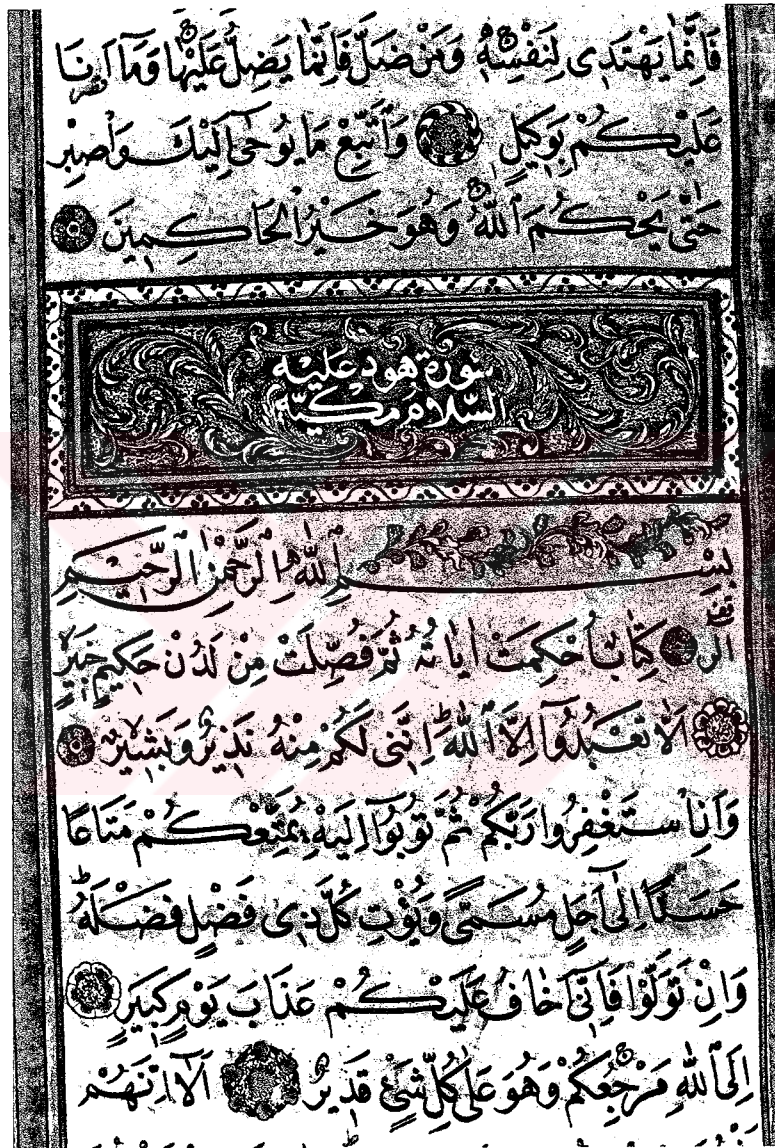 فَاِنَّمَا يَهْتَدٖى لِنَفْسِهٖ وَمَنْ ضَلَّ فَاِنَّمَا يَضِلُّ عَلَيْهَا وَمَٓا اَنَا
عَلَيْكُمْ بِوَكٖيلٍ وَاتَّبِعْ مَا يُوحٰٓى اِلَيْكَ وَاصْبِرْ
حَتّٰى يَحْكُمَ اللّٰهُ وَهُوَ خَيْرُ الْحَاكِمٖينَ
سورة هود عليه
السّلام مكيّة
بِسْمِ اللّٰهِ الرَّحْمٰنِ الرَّحٖيمِ
الٓرٰ كِتَابٌ اُحْكِمَتْ اٰيَاتُهُ ثُمَّ فُصِّلَتْ مِنْ لَدُنْ حَكٖيمٍ خَبٖيرٍ
اَلَّا تَعْبُدُٓوا اِلَّا اللّٰهَ اِنَّنٖى لَكُمْ مِنْهُ نَذٖيرٌ وَبَشٖيرٌ
وَاَنِ اسْتَغْفِرُوا رَبَّكُمْ ثُمَّ تُوبُٓوا اِلَيْهِ يُمَتِّعْكُمْ مَتَاعًا
حَسَنًا اِلٰٓى اَجَلٍ مُسَمًّى وَيُؤْتِ كُلَّ ذٖى فَضْلٍ فَضْلَهُ
وَاِنْ تَوَلَّوْا فَاِنّٖٓى اَخَافُ عَلَيْكُمْ عَذَابَ يَوْمٍ كَبٖيرٍ
اِلَى اللّٰهِ مَرْجِعُكُمْ وَهُوَ عَلٰى كُلِّ شَیْءٍ قَدٖيرٌ اَلَٓا اِنَّهُمْ